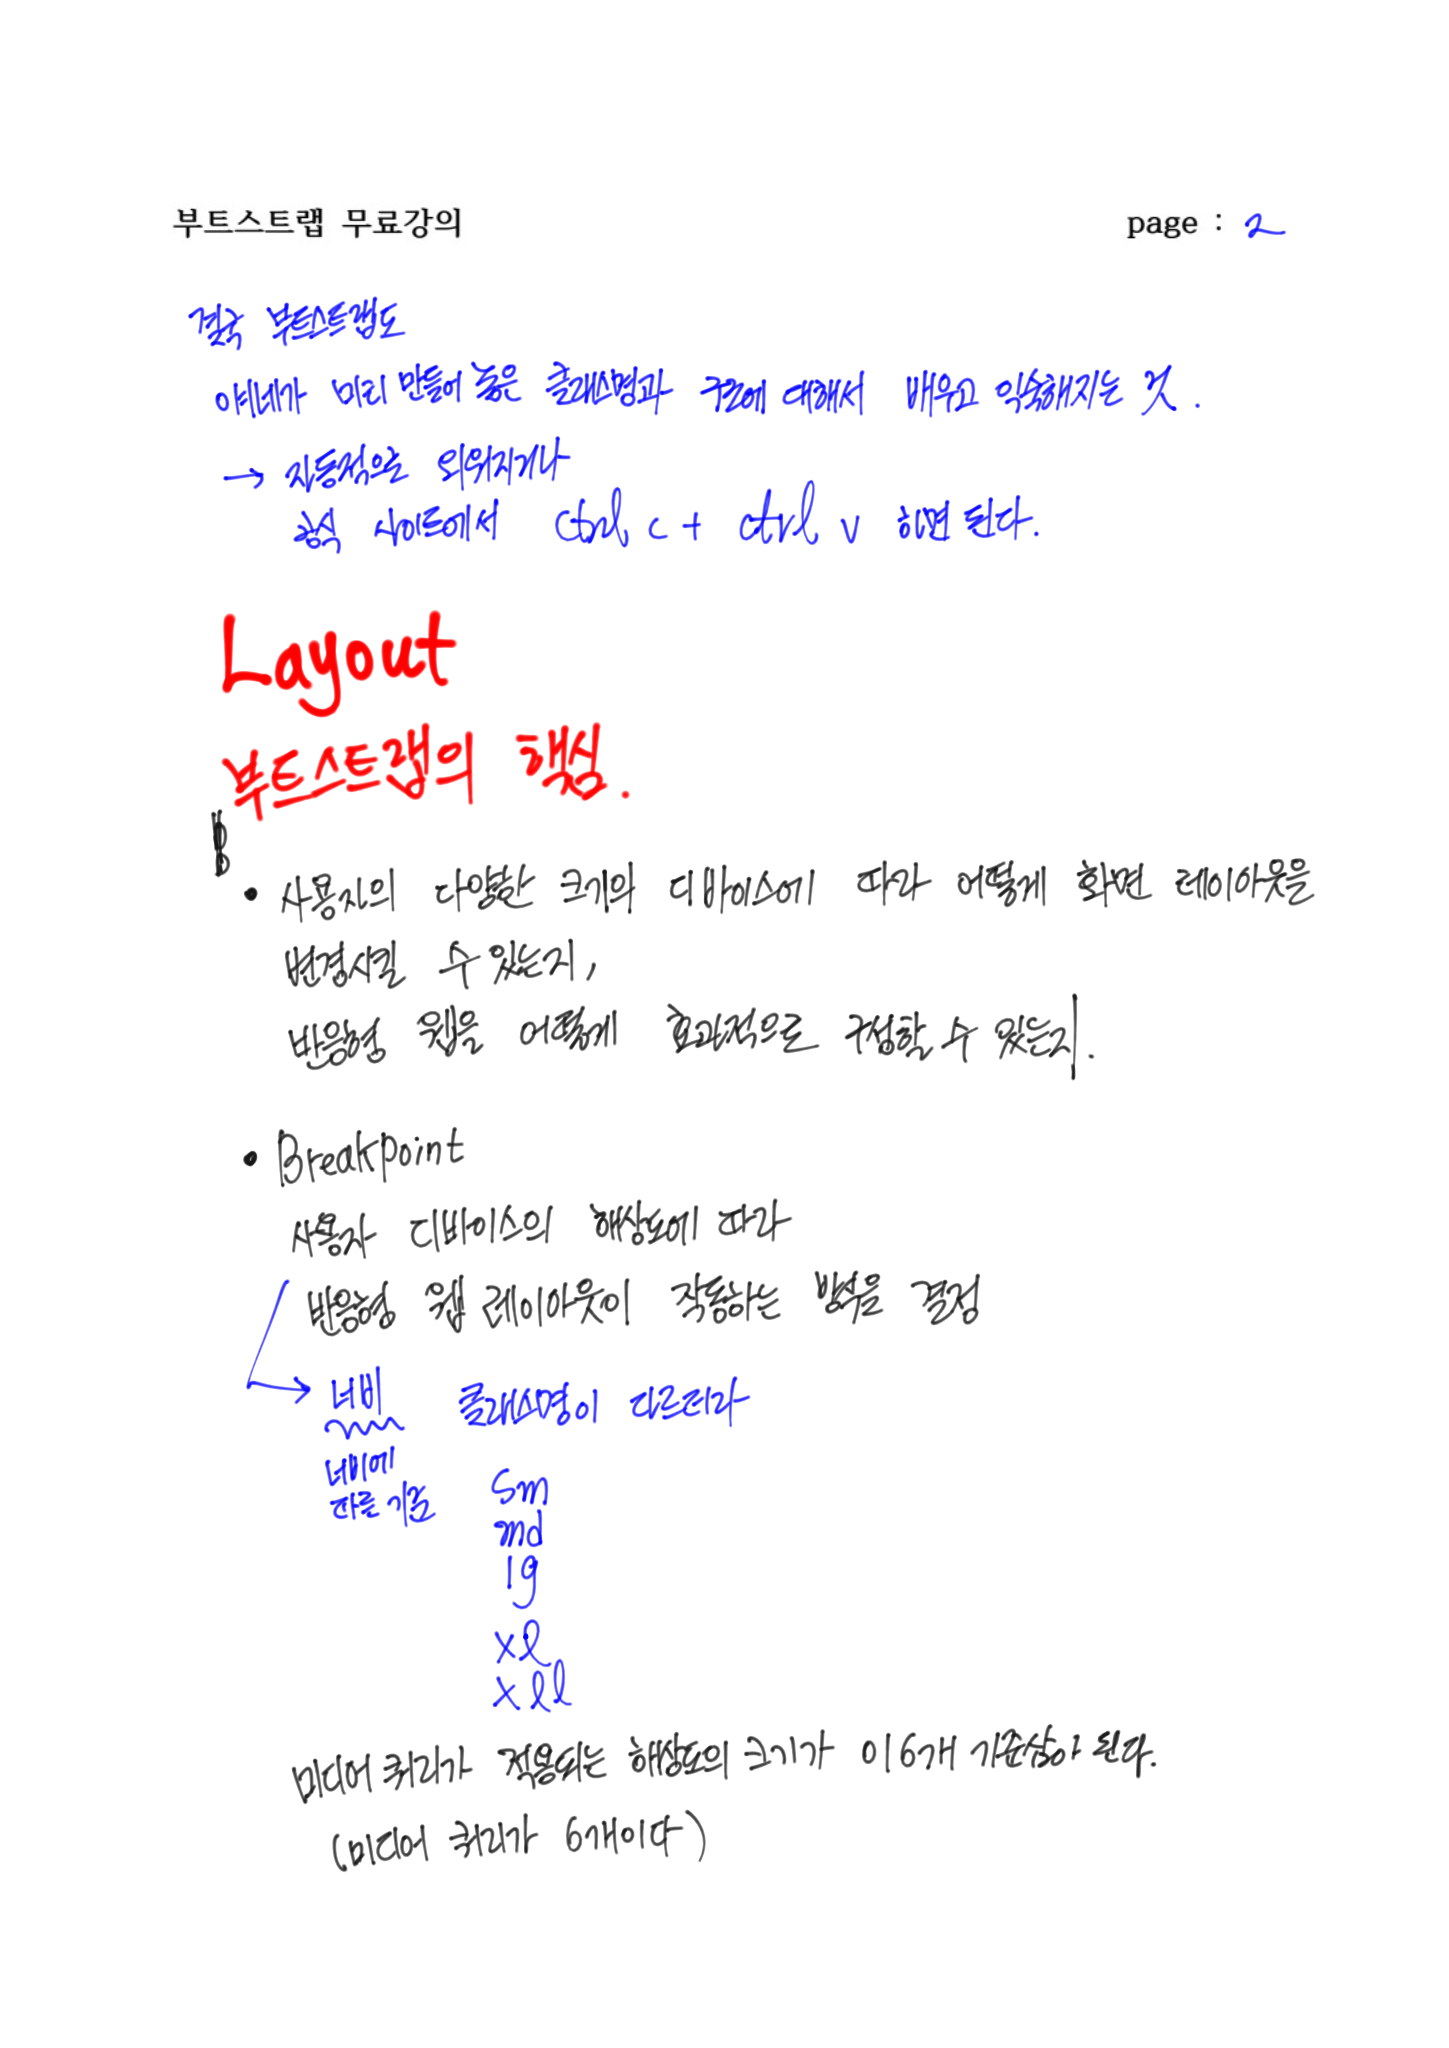 부트스트랩 무료강의
page : 2
결국 부트스트랩도
얘네가 미리 만들어 놓은 클래스명과 구조에 대해서 배우고 익숙해지는 것.
→ 자동적으로 외워지거나
공식 사이트에서 ctrl c + ctrl v 하면 된다.
Layout
부트스트랩의 핵심.
• 사용자의 다양한 크기의 디바이스에 따라 어떻게 화면 레이아웃을
변경시킬 수 있는지,
반응형 웹을 어떻게 효과적으로 구성할 수 있는지.
• Breakpoint
사용자 디바이스의 해상도에 따라
반응형 웹 레이아웃이 작동하는 방식을 결정
→ 너비 클래스명이 다르더라
너비에
따른 기준
sm
md
lg
xl
xll
미디어 쿼리가 적용되는 해상도의 크기가 이 6개 기준삼아 된다.
(미디어 쿼리가 6개이다)